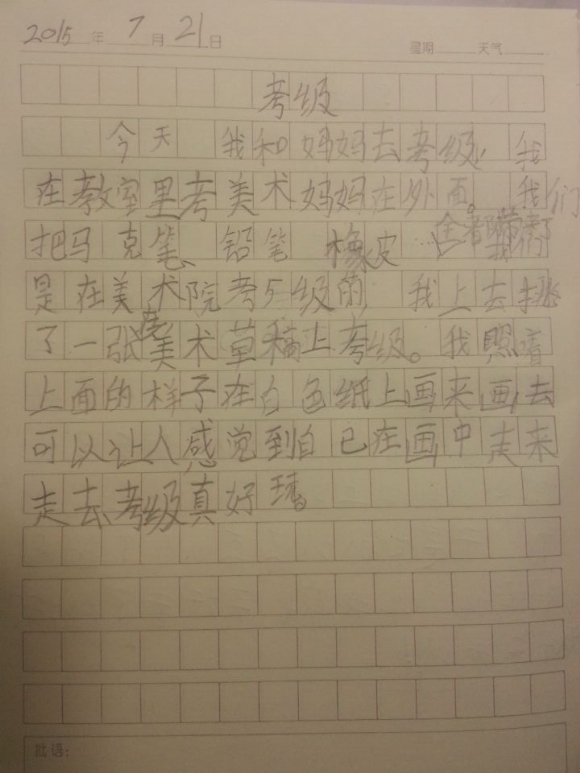 2015年7月21日 星期 天气
考级
今天 我和妈妈去考级，我
在教室里考美术妈妈在外面。我们
把马克笔、铅笔 橡皮 全部带来了 我们
是在美术院考5级的 我上去挑
了一张美术草稿上考级。我照着
上面的样子在白色纸上画来画去
可以让人感觉到自己在画中走来
走去、考级真好